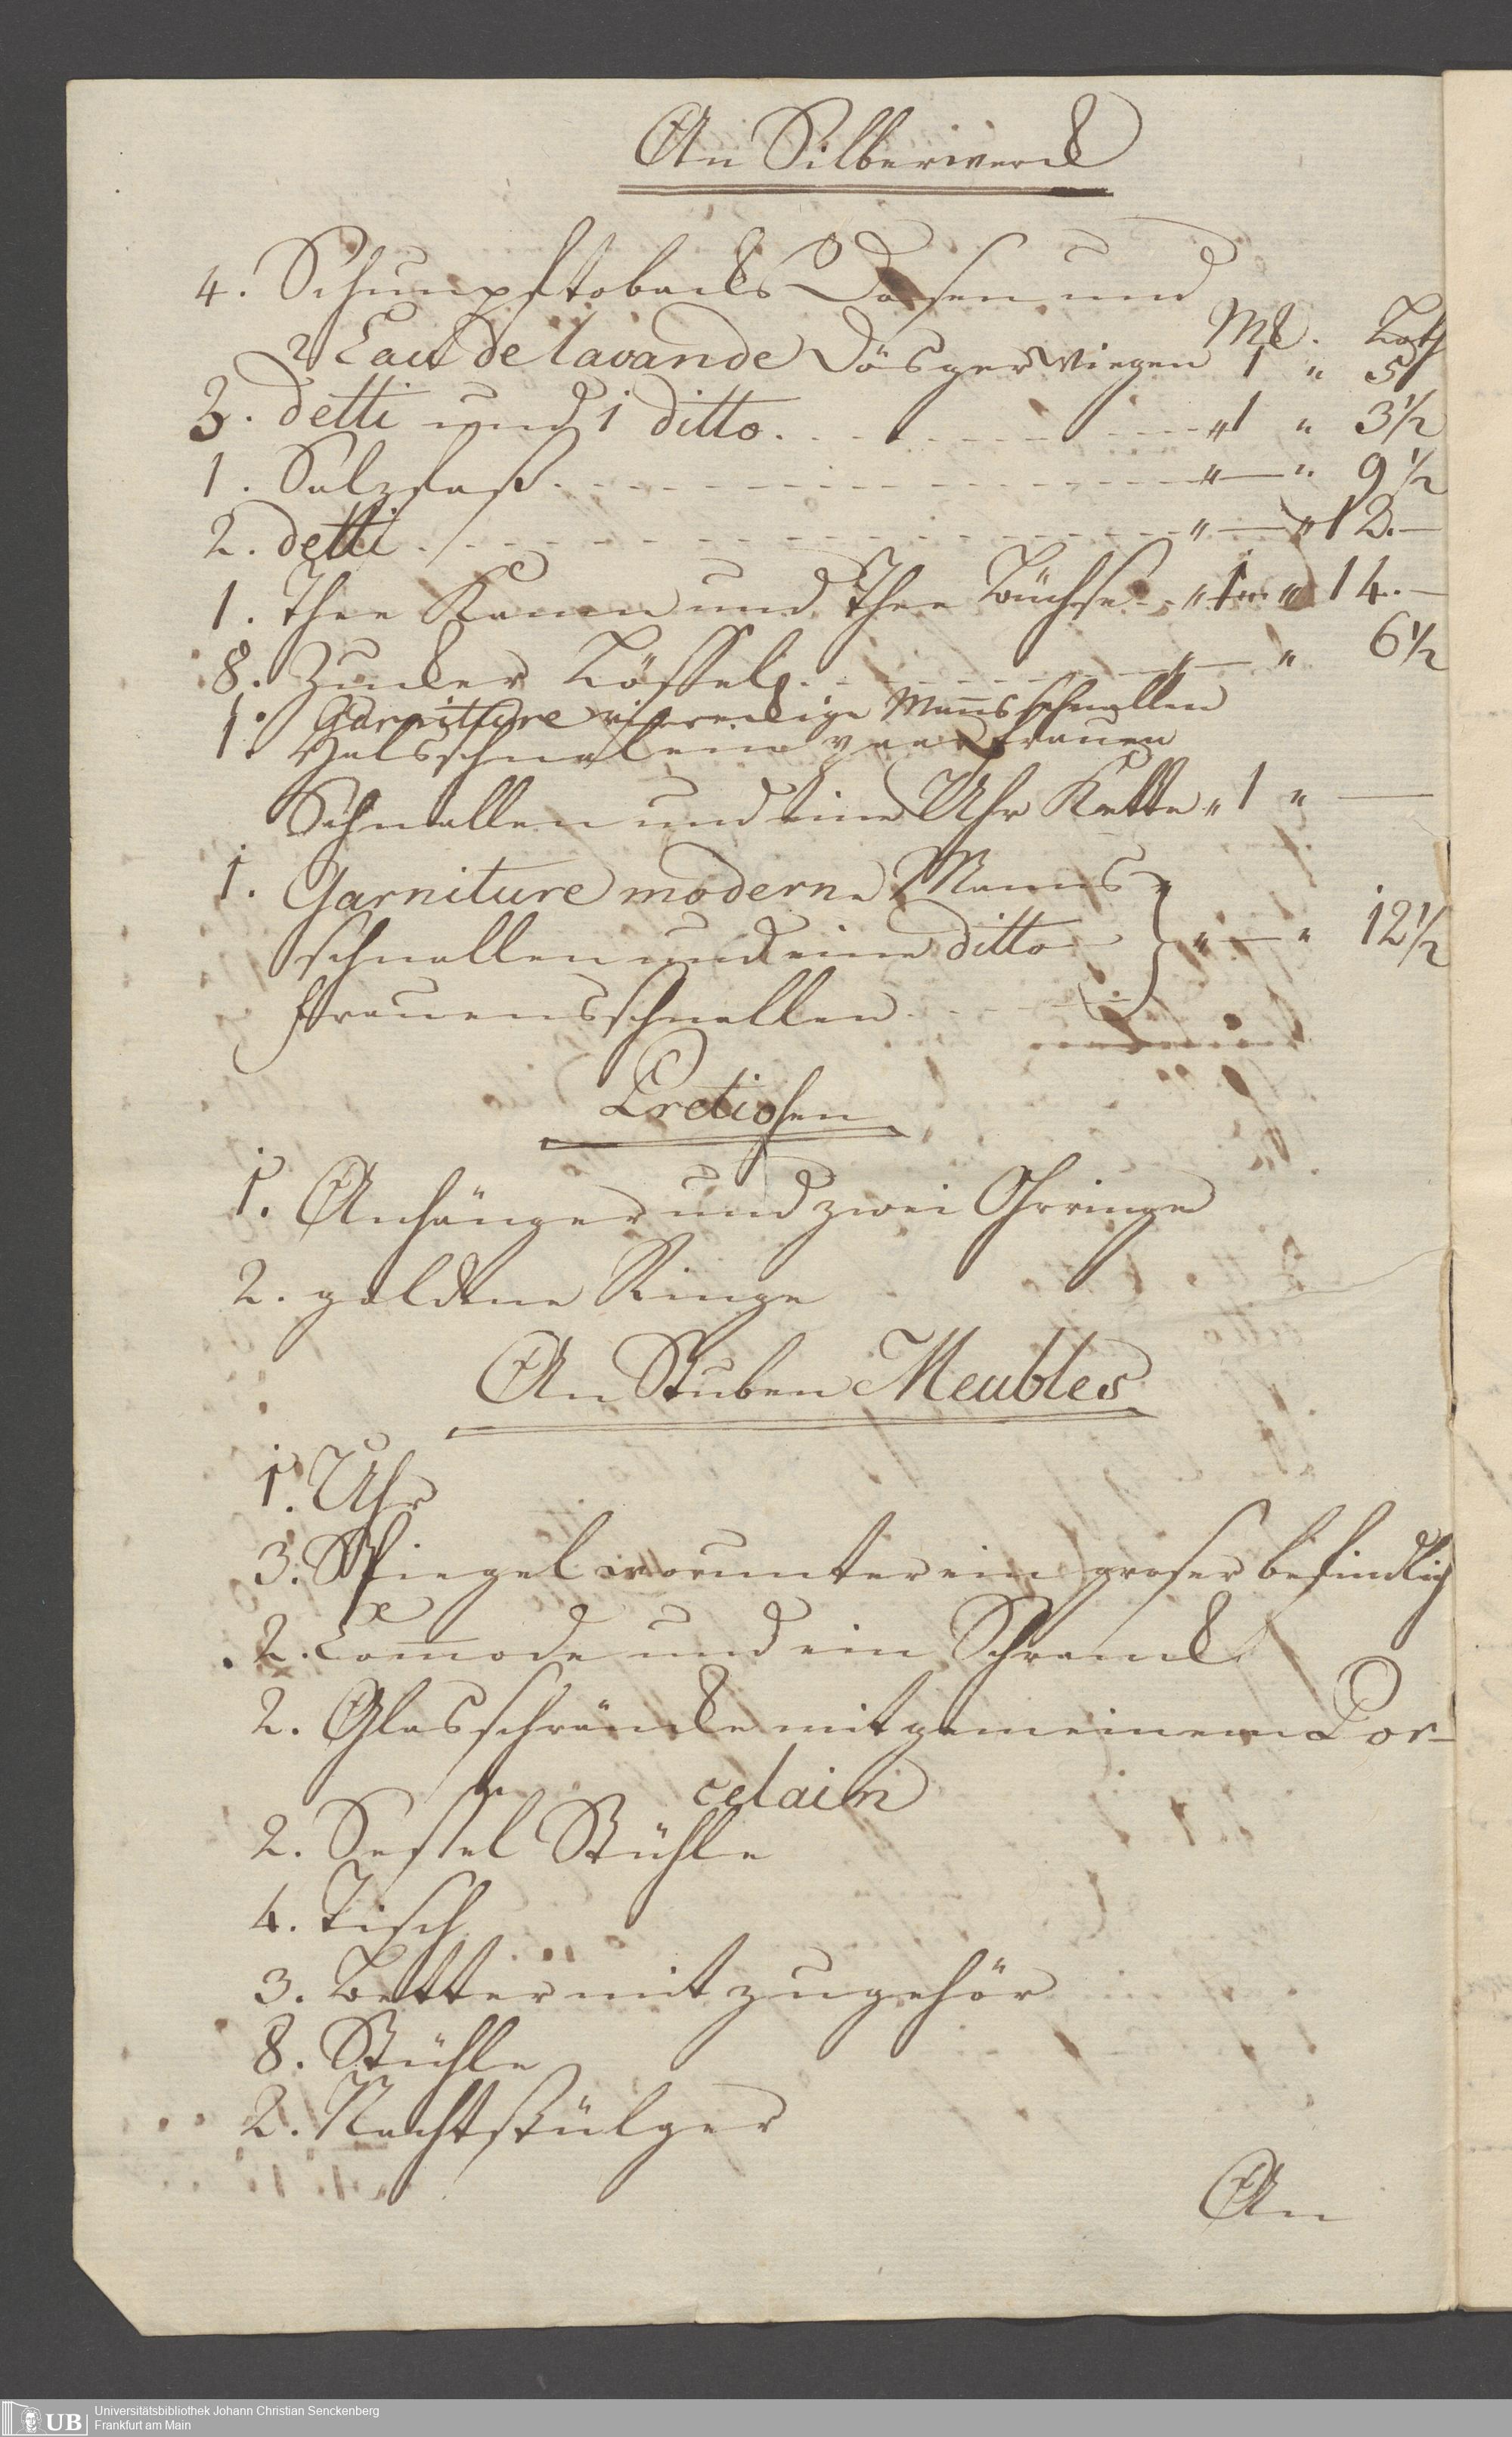 An Silberwerck
4. Schnupftobacks Dosen und
2 Eau de lavande Dösger wiegen Mk. 1 " Loth 5
3. detti und 1 ditto. " 1 " 3½
1. Salzfaß " — " 9½
2. detti " — " 12. —
1. Thee Kann und Thee Büchse " 1 " 14. —
8. Zucker Löffel " — " 6½
1. Garniture viereckige Mannsschnallen
1. Halsschnal ein paar frauen
Schnallen und eine Uhr Kette " 1 " —
1. Garniture moderne Manns
schnallen und eine ditto " — " 12½
frauensschnallen
Pretiosen
1. Anhänger und zwei Ohrringe
2. goldene Ringe
An Stuben Meubles
1. Uhr
3. Spiegel worunter ein groser befindlich
2. Com̄ode und ein Schranck
2. Glasschräncke mit gemeinem Por-
celain
2. Sessel Stühle
4. Tisch
3. Better mit zugehör
8. Stühle
2. Nachtstülger
An
UB Universitätsbibliothek Johann Christian Senckenberg
Frankfurt am Main